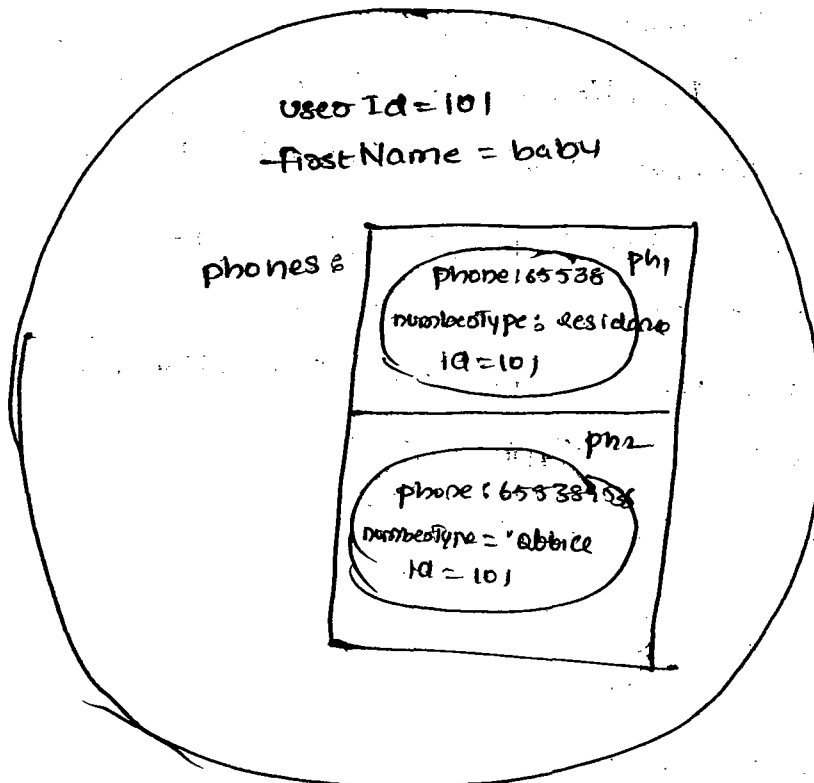 user Id = 101
firstName = baby
phones :
ph1
phone : 65538
numberType : Residence
id = 101
ph2
phone : 65538
numberType = "office
id = 101